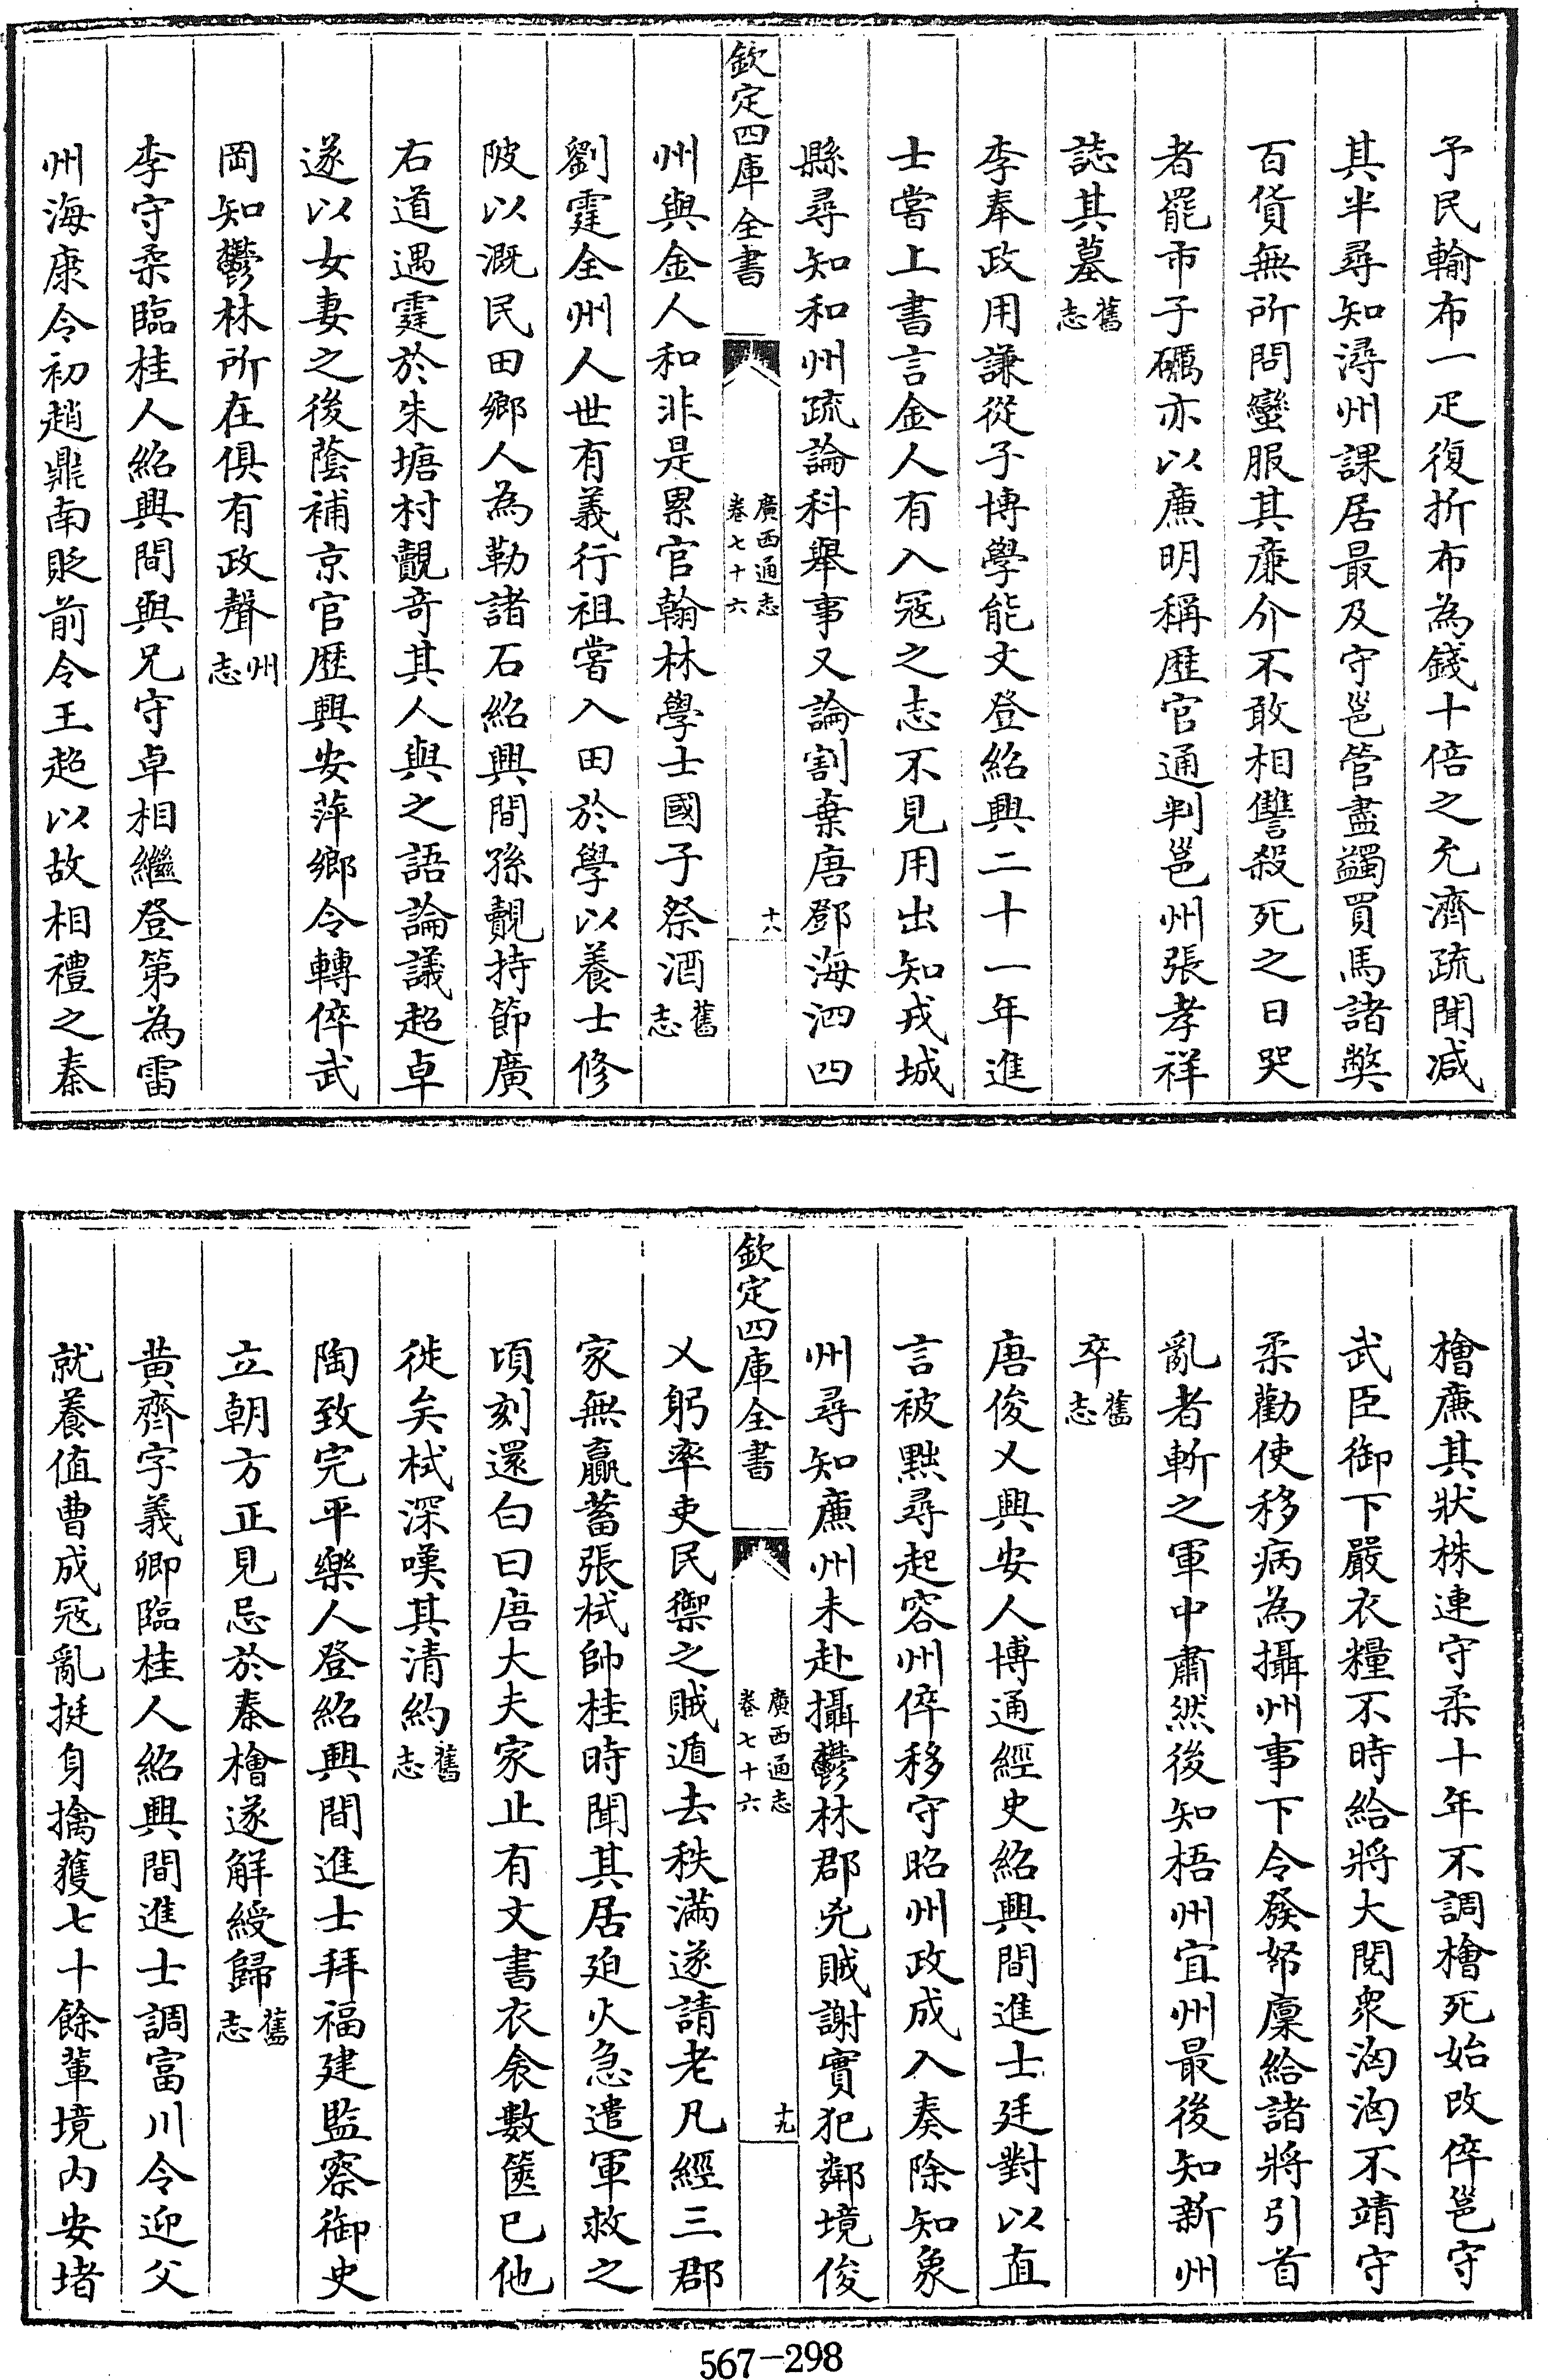 予民輸布一疋復折布為錢十倍之允濟疏聞减
其半尋知潯州課居最及守邕管盡蠲買馬諸弊
百貨無所問蠻服其亷介不敢相讐殺死之日哭
者罷市子礪亦以亷明稱歴官通判邕州張孝祥
誌其墓舊志
李奉政用謙從子博學能文登紹興二十一年進
士嘗上書言金人有入冦之志不見用出知戎城
縣尋知和州疏論科舉事又論割棄唐鄧海泗四
欽定四庫全書 廣西通志 卷七十六 十八
州與金人和非是累官翰林學士國子祭酒舊志
劉霆全州人世有義行祖嘗入田於學以養士修
陂以溉民田鄉人為勒諸石紹興間孫覿持節廣
右道遇霆於朱塘村覿竒其人與之語論議超卓
遂以女妻之後蔭補京官歴興安萍鄉令轉倅武
岡知鬱林所在俱有政聲州志
李守柔臨桂人紹興間與兄守卓相繼登第為雷
州海康令初趙鼎南貶前令王超以故相禮之秦
檜亷其狀株連守柔十年不調檜死始改倅邕守
武臣御下嚴衣糧不時給將大閱衆洶洶不靖守
柔勸使移病為攝州事下令發帑廩給諸將引首
亂者斬之軍中肅然後知梧州宜州最後知新州
卒舊志
唐俊乂興安人博通經史紹興間進士廷對以直
言被黜尋起容州倅移守昭州政成入奏除知象
州尋知亷州未赴攝鬱林郡兇賊謝實犯鄰境俊
欽定四庫全書 廣西通志 卷七十六 十九
乂躬率吏民禦之賊遁去秩滿遂請老凡經三郡
家無贏蓄張栻帥桂時聞其居廹火急遣軍救之
頃刻還白曰唐大夫家止有文書衣衾數篋已他
徙矣栻深嘆其清約舊志
陶致完平樂人登紹興間進士拜福建監察御史
立朝方正見忌於秦檜遂解綬歸舊志
黄齊字義卿臨桂人紹興間進士調富川令迎父
就養值曹成冦亂挺身擒獲七十餘輩境内安堵
567-298